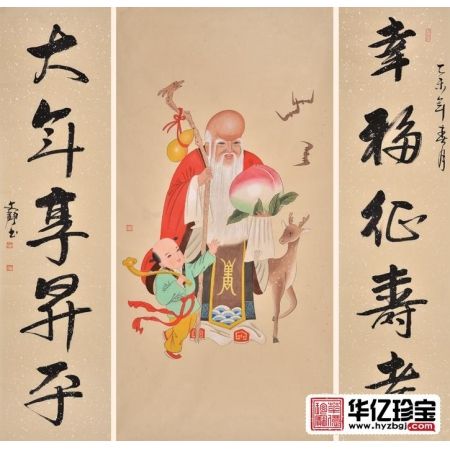 幸福征壽考
乙未年春月
大年享昇平
壽
华亿珍宝
www.hyzbgj.com